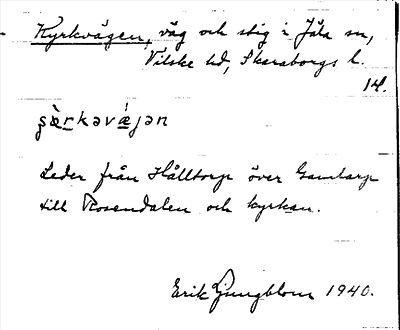 Kyrkvägen, väg och stig i Jäla sn,
Vilske hd, Skaraborgs l.
14.
çæ̀rkəvǽjən
Leder från Hålltorp över Gamlarp
till Rosendalen och kyrkan.
Erik Ljungblom 1940.